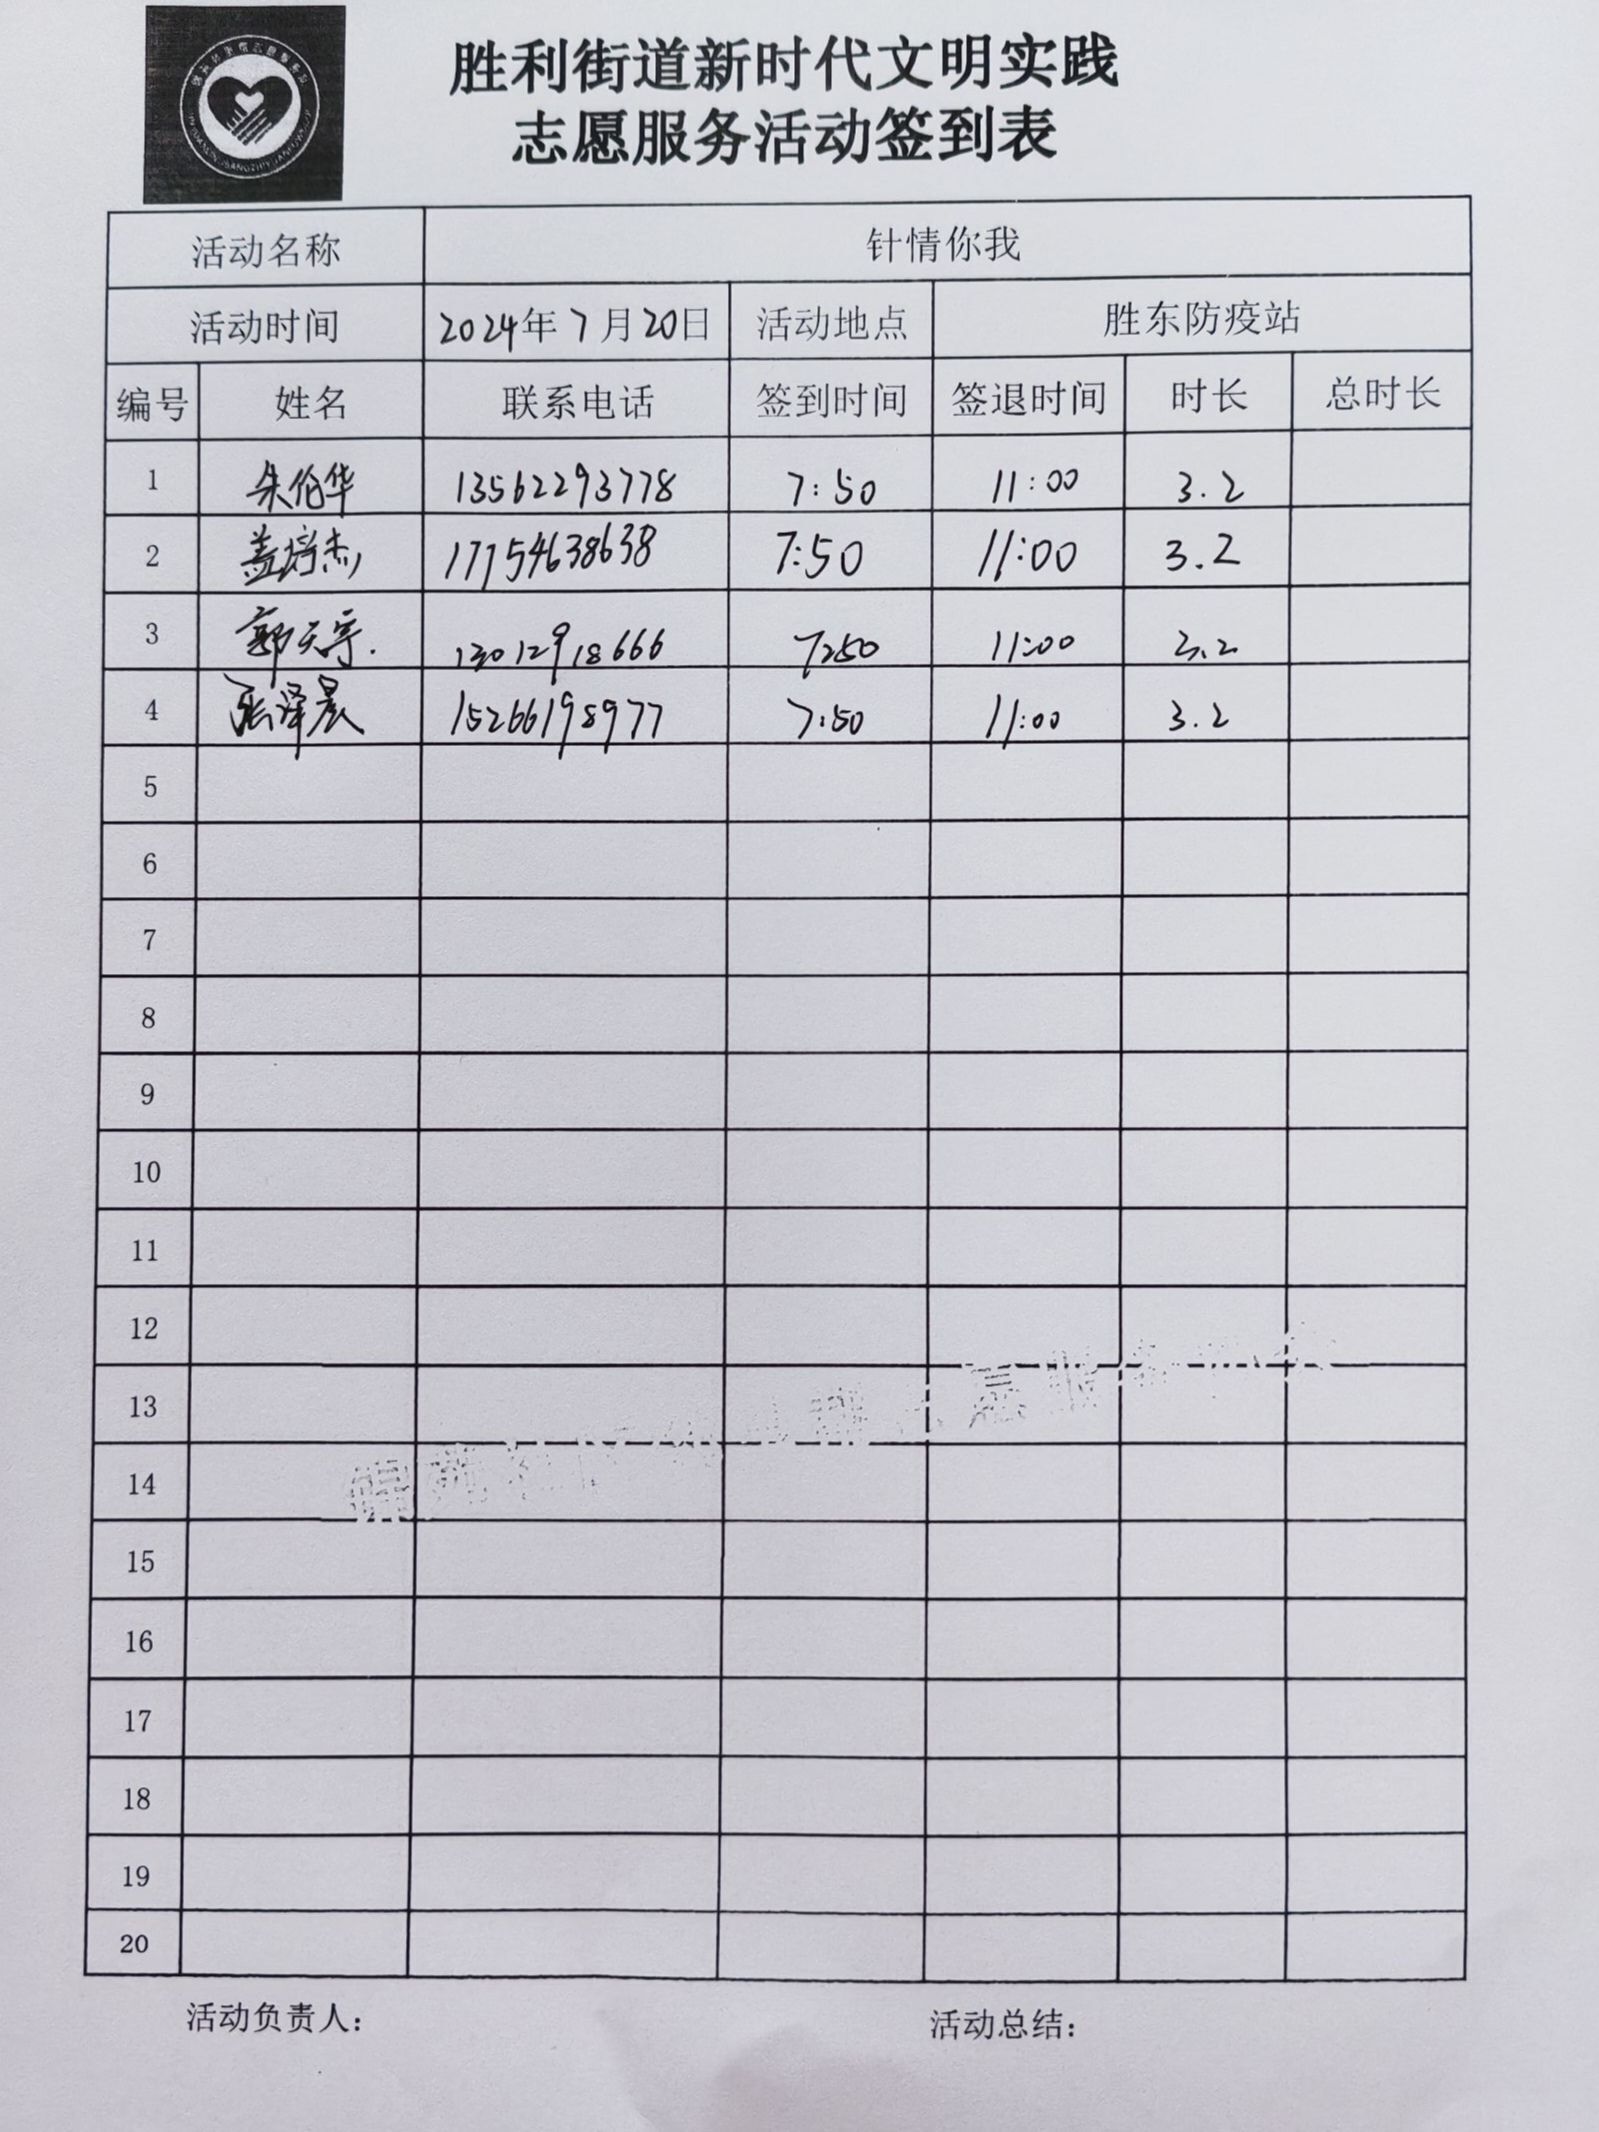 胜利街道新时代文明实践
志愿服务活动签到表
活动名称 针情你我
活动时间 2024年7月20日 活动地点 胜东防疫站
编号 姓名 联系电话 签到时间 签退时间 时长 总时长
1 朱伦华 13562293778 7:50 11:00 3.2
2 盖培杰 17754638638 7:50 11:00 3.2
3 郭天宇. 13012918666 7:50 11:00 3.2
4 张泽晨 15266198977 7:50 11:00 3.2
5
6
7
8
9
10
11
12
13
14
15
16
17
18
19
20
活动负责人: 活动总结: